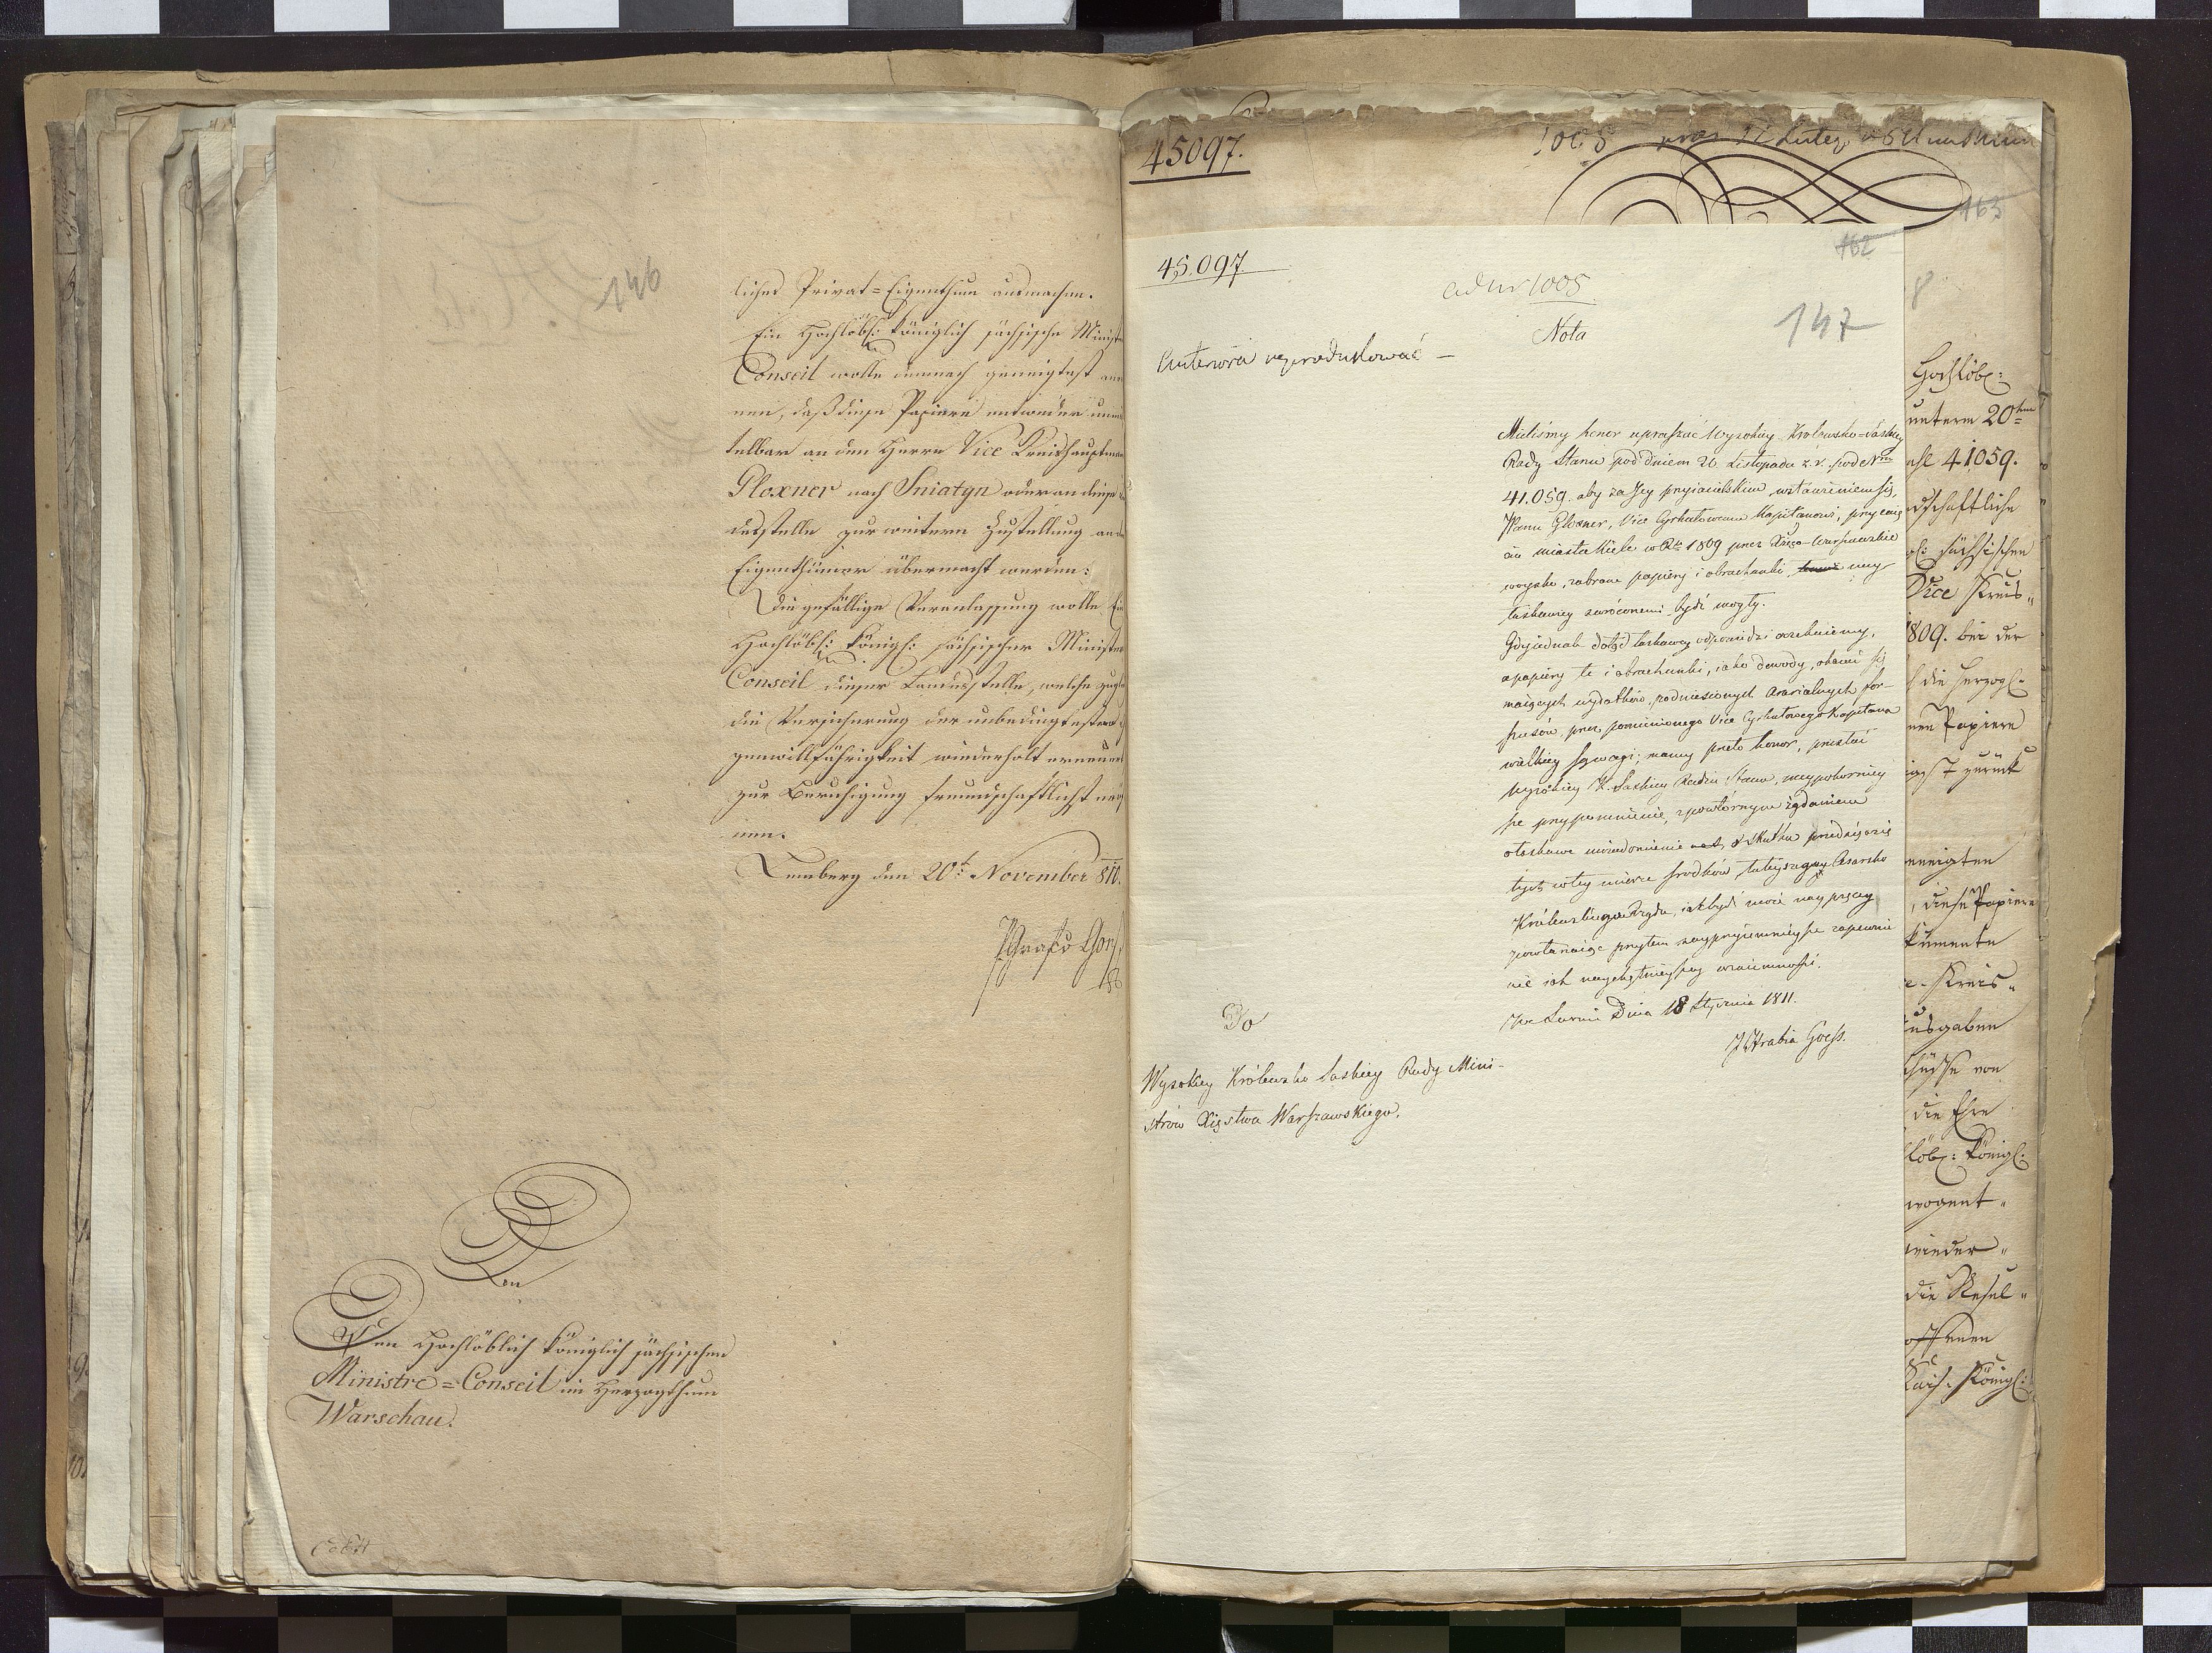 146
liches Privat=Eigenthum ausmachen.
Ein Hochlöbl: königlich sächsische Ministe
Conseil wolle demnach geneigtest
nen, daß diese Papiere entweder unmi
telbar an den Herrn Vice Kreishauptman
Gloxner nach Sniatyn oder an diese
desstelle zur weitern Zustellung an d
Eigenthümer übermacht werden:
Die gefällige Veranlassung wolle Ein
Hochlöbl: königl: sächsischer Ministe
Conseil dieser Landesstelle, welche zugle
die Versicherung der unbedingtesten
genwillfährigkeit wiederholt erneuer
zur Beruhigung freundschaftlichst
nen.
Lemberg den 20t November 810.
PGraf v Goeß
An
Den Hochlöblich königlich sächsischen
Ministre=Conseil im Herzogthum
Warschau.
45097.
1005 prez 12 Lutego
163
162
45.097
ad nr 1005
147
Nota
Anteriora reprodukować —
Mieliśmy honor upraszać Wysokiey Królewsko=Saskiey
Rady Stanu pod dniem 20. Listopada z. r. pod Nrm
41.059. aby za Jey przyiacielskim wstawieniem się,
Panu Gloxner, Vice Cyrkułowemu Kapitanowi, przy
ciu miasta Kielc w Rku 1809 przez Xięco-Warszawskie
woysko, zabrane papiery i obrachunki, nay
łaskawiey zwróconemi bydź mogły.
Gdy iednak dotąd łaskawey odpowiedzi oczekuiemy,
a papiery te i obrachunki, iako dowody, okazać się
maiących wydatków podniesionych Ararialnych for-
szusów, przez pomienionego Vice Cyrkułowego Kapitana
wielkiey są wagi; mamy przeto honor, przesłać
Wysokiey K. Saskiey Radzie Stanu, naypokorniey
sze przypomnienie, z powtórnym żądaniem
o łaskawe uwiadomienie o skutku przedsięwzię
tych w tey mierze środków, tuteyszego Cesarsko
Królewskiego Rządu, iak bydź może nayprędzey
powtarzaiąc przytem nayprzyiemnieysze zapewnie
nie ich naychętnieyszey wzaiemności.
We Lwowie Dnia 18 Stycznia 1811.
J Hrabia Goess.
Do
Wysokiey Królewsko Saskiey Rady Mini-
strów Xięstwa Warszawskiego.
8
Hochlöbl:
unterm 20ten
ahl 41059.
dschaftliche
sächsischen
Vice Kreis„
1809. bei der
die Herzogl.
nen Papiere
igst zurück
eneigten
, diese Papiere
kumente
e-Kreis„
Ausgaben
schüsse von
die Ehre
löbl: Königl:
wogent„
wieder„
die Resul„
offenen
Kais. Königl: